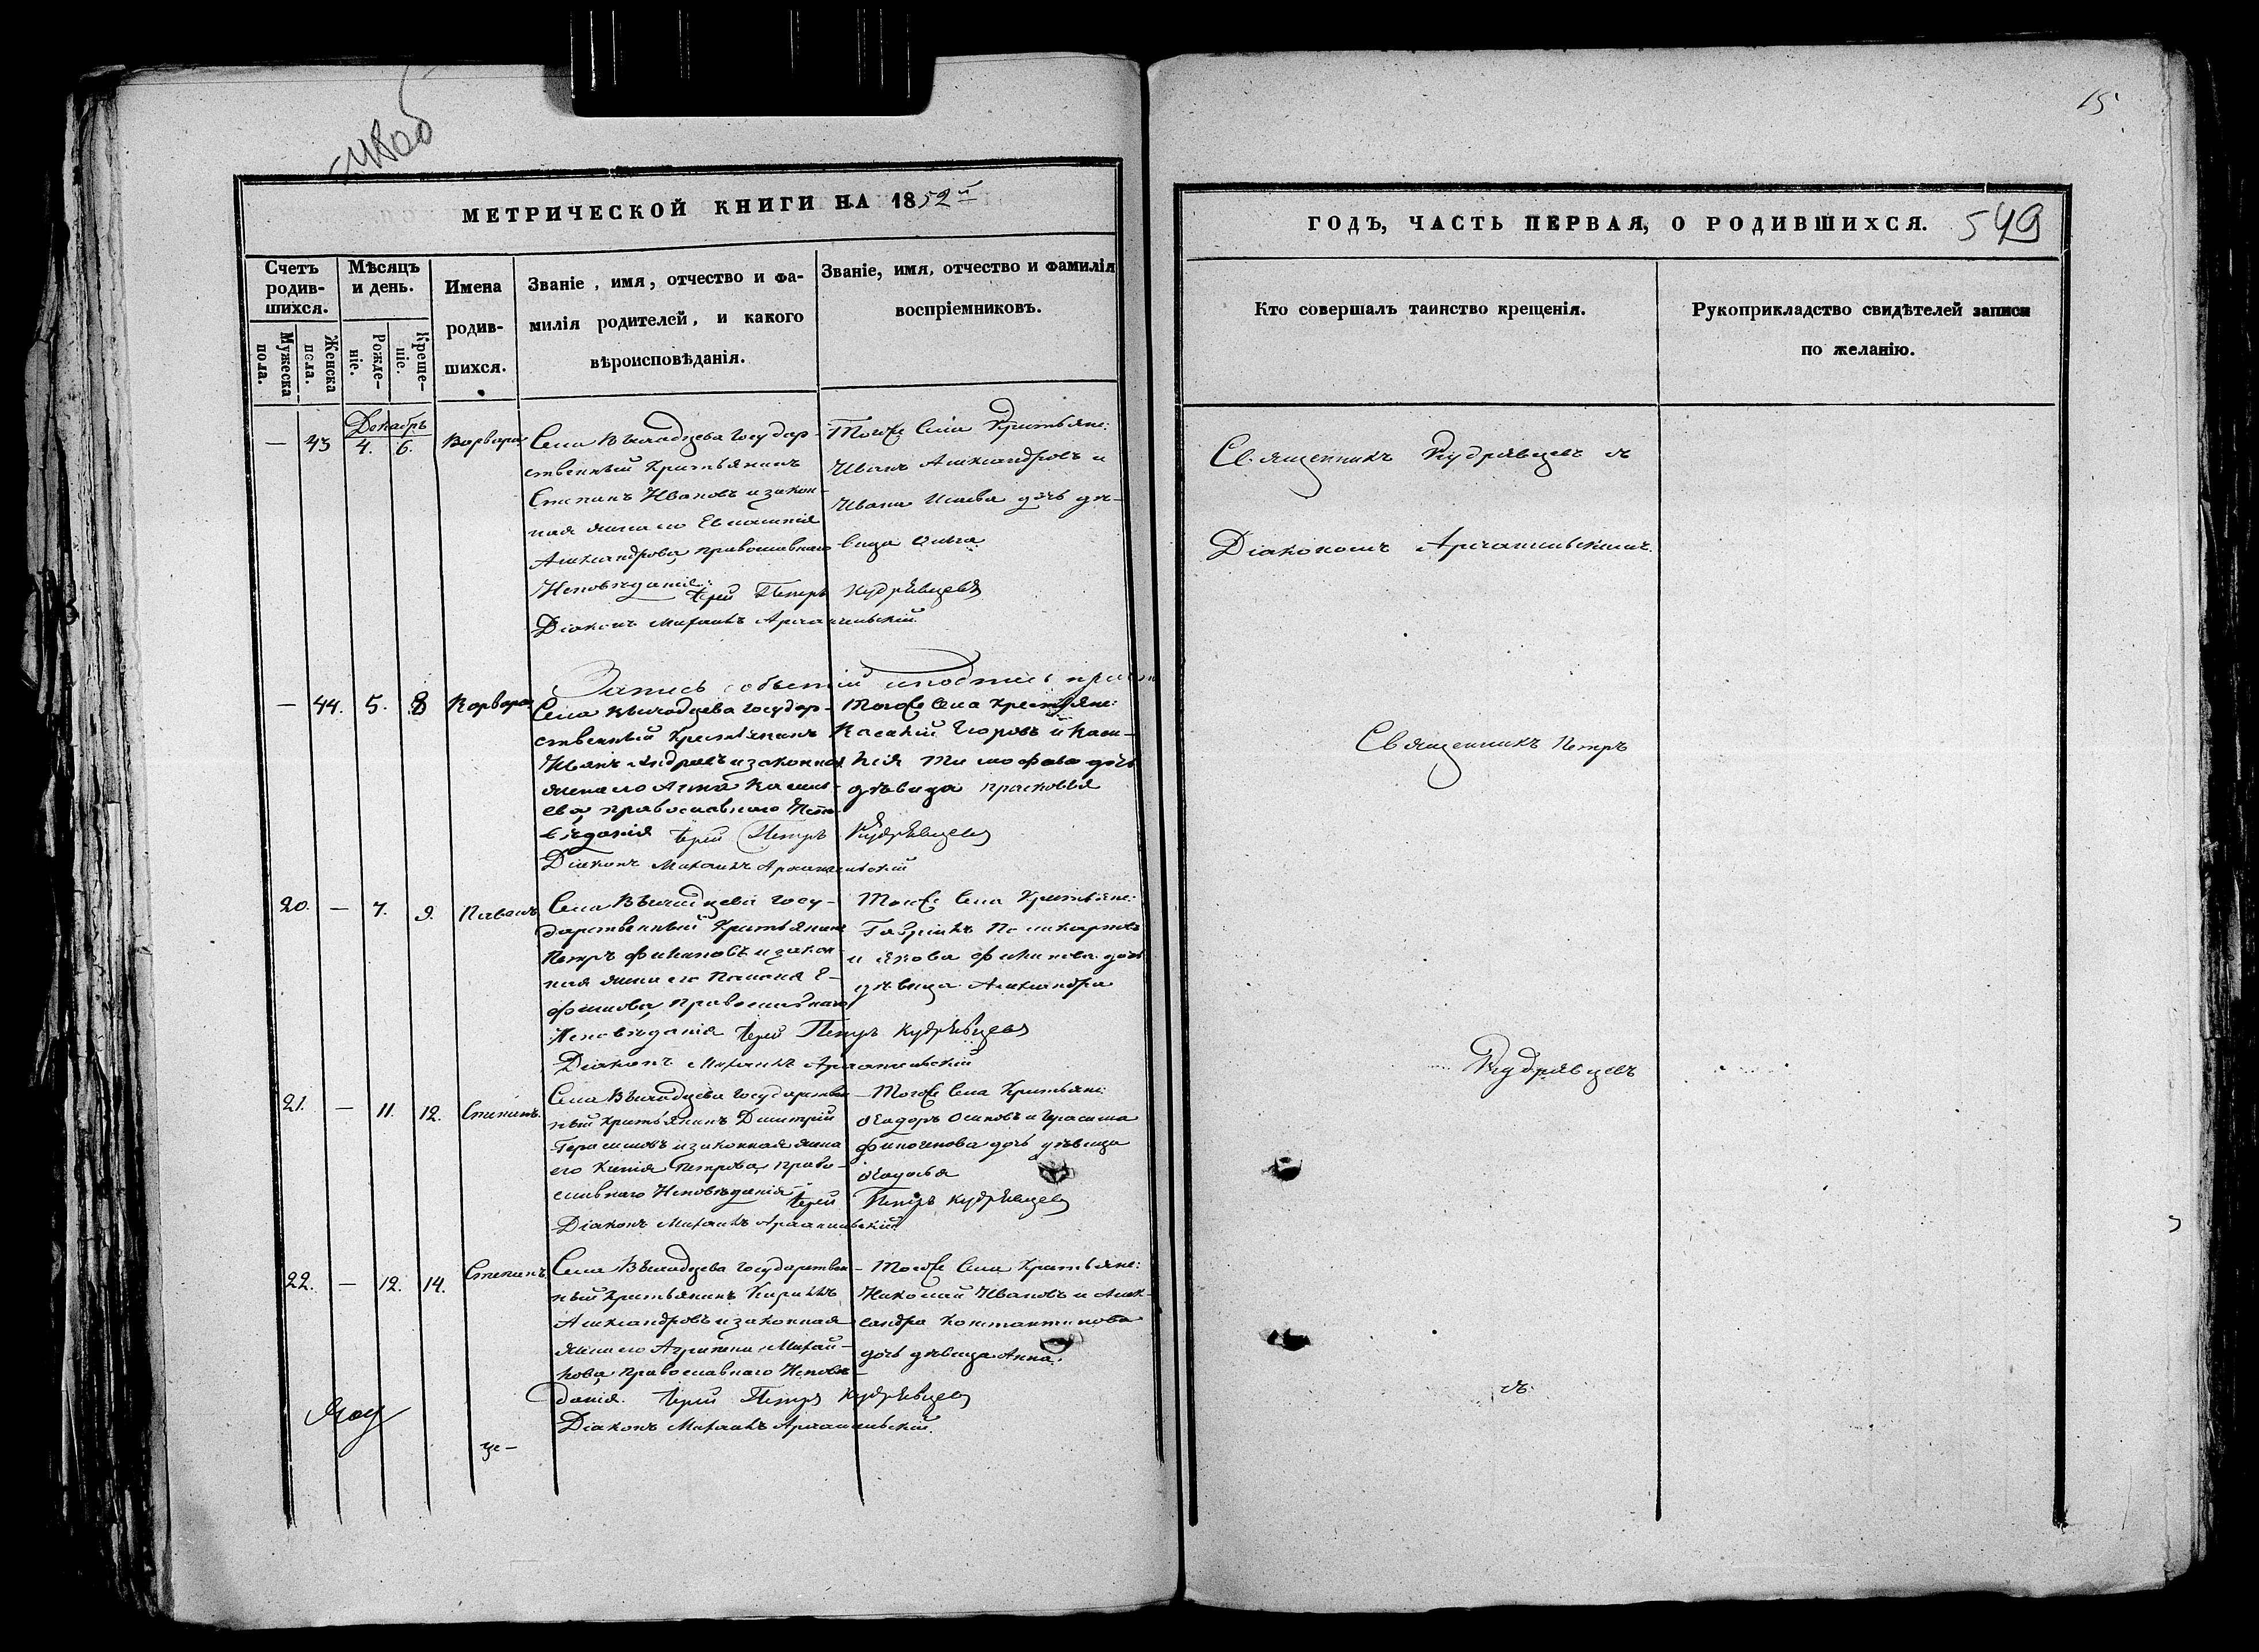 15
МЕТРИЧЕСКОЙ КНИГИ НА 1852й
ГОДЪ, ЧАСТЬ ПЕРВАЯ, О РОДИВШИХСЯ. 549
Счетъ родив-шихся.
Мужеска пола.
Женска пола.
Мѣсяцъ и день.
Рожде-ніе.
Креще-ніе.
Имена
родив-
шихся.
Званіе, имя, отчество и фа-
милія родителей, и какого
вѣроисповѣданія.
Званіе, имя, отчество и фамилія
воспріемниковъ.
Кто совершалъ таинство крещенія.
Рукоприкладство свидѣтелей записи
по желанію.
Декабрь
— 43 4. 6. Варвара
Села Вышадцева Государ-
ственный Крестьянинъ
Степанъ Ивановъ и закон-
ная жена его
Александрова, православнаго
Исповѣданія: Іерей Петръ Кудрявцевъ
Діаконъ Михаилъ Архангельскій.
Тогоже Села Крестьяне:
Иванъ Александровъ и
Ивана Исаева дочь дѣ-
вица Ольга
Священникъ Кудрявцевъ съ
Діакономъ Архангельскимъ.
— 44. 5. 8 Варвара
Села Вышадцева Государ-
ственный Крестьянинъ
Иванъ Андреевъ и законная
жена его Анна
ева, православнаго Испо-
вѣданія Іерей Петръ Кудрявцевъ
Діаконъ Михаилъ Архангельскій
Тогоже Села Крестьяне:
Егоровъ и
Тимофѣева дочь
дѣвица Прасковья
Священникъ Петръ
20. — 7. 9. Павелъ
Села Вышадцева Госу-
дарственный Крестьянинъ
Петръ Филиповъ и закон-
ная жена его Е-
фимова, православнаго
Исповѣданія Іерей Петръ Кудрявцевъ
Діаконъ Михаилъ Архангельскій
Тогоже Села Крестьяне:
Гаврiилъ Поликарповъ
и Якова Филипова дочь
дѣвица Александра
Кудрявцевъ
21. — 11. 12. Степанъ.
Села Вышадцева Государствен-
ный Крестьянинъ Дмитрій
Герасимовъ и законная жена
его Ксенія Петрова, право-
славнаго Исповѣданія Іерей Петръ Кудрявцевъ
Діаконъ Михаилъ Архангельскій
Тогоже Села Крестьяне:
Ѳеодоръ Осиповъ и Герасима
Финогенова дочь дѣвица
Ѳеодосья
22. — 12. 14. Степанъ
Села Вышадцева Государствен-
ный Крестьянинъ Кирилъ
Александровъ и законная
жена его Агрипена Михай-
лова, православнаго Исповѣ-
данія. Іерей Петръ Кудрявцевъ
Діаконъ Михаилъ Архангельскій.
Тогоже Села Крестьяне:
Николай Ивановъ и Алек-
сандра Константинова
дочь дѣвица Анна.
съ.
це-